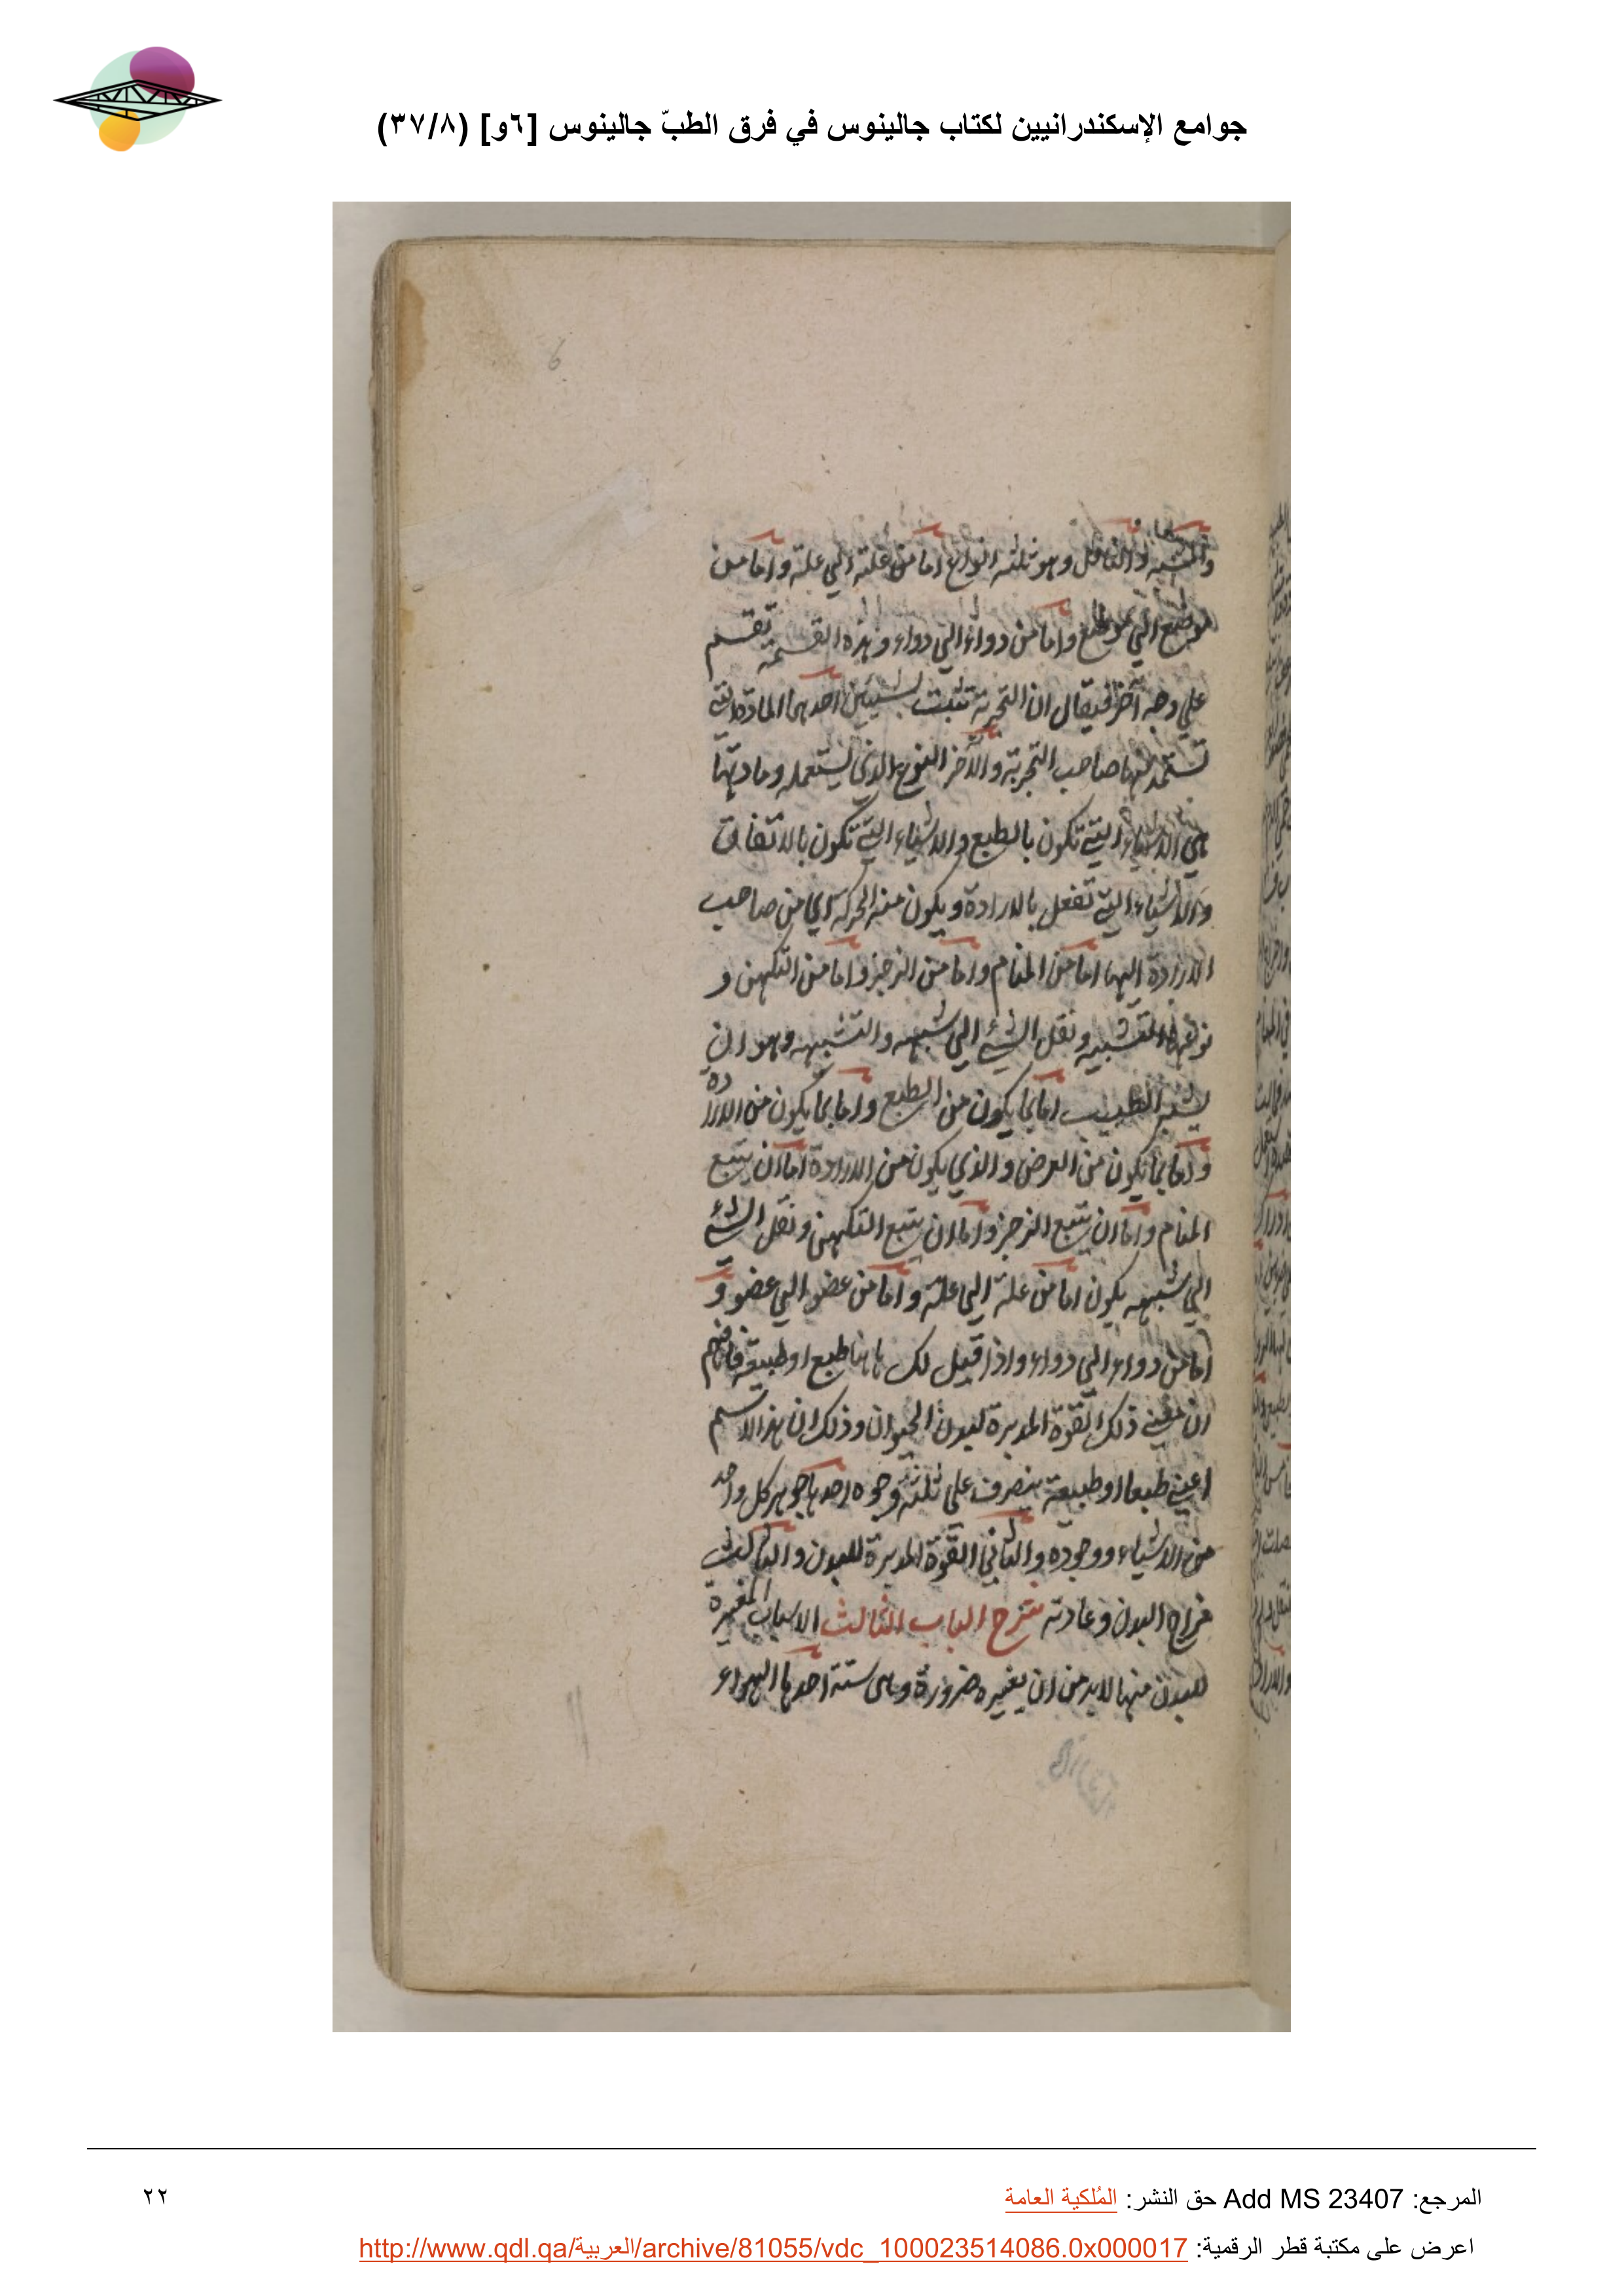 جوامع الإسكندرانيين لكتاب جالينوس في فرق الطبّ جالينوس [٦و] (٣٧/٨)
6
والمشبه والناقل وهو ثلثه انواع اما من علته الي علة واما من
موضع الي موضع واما من دواء الي دواء وهذه القسمة تقسم
علي وجه آخر فيقال ان التجربة تثبت بشيئين احدهما المادة التي
تستمد منها صاحب التجربة والآخر النوع الذي يستعمله ومادتها
هي الاشياء التي تكون بالطبع والاشياء التي تكون بالاتفاق
والاشياء التي تفعل بالارادة ويكون منه الحركة اي من صاحب
الارادة اليها اما من المنام واما من الزجر واما من التكهن و
نوعها التشبيه ونقل الشئ الي شبهه والتشبيه وهو ان
يشبه الطبيب اما بما يكون من الطبع واما بما يكون من الارادة
واما بما يكون من العرض والذي يكون من الارادة اما ان يتبع
المنام واما ان يتبع الزجر واما ان يتبع التكهن ونقل الشئ
الي شبهه يكون اما من علة الي علة واما من عضو الي عضو و
اما من دواء الي دواء واذا قيل لك هاهنا طبع او طبيعة فافهم
ان معني ذلك القوة المدبرة لبدن الحيوان وذلك ان هذا الاسم
اعني طبعا او طبيعة ينصرف علي ثلثة وجوه احدها جوهر كل واحد
من الاشياء ووجوده والثاني القوة المدبرة للبدن والثالث
مزاج البدن وعادته شرح الباب الثالث الاسباب المغيرة
للبدن منها لابد من ان يغيره ضرورة وهي ستة احدها الهواء
المرجع: Add MS 23407 حق النشر: المُلكية العامة
٢٢
اعرض على مكتبة قطر الرقمية: http://www.qdl.qa/العربية/archive/81055/vdc_100023514086.0x000017